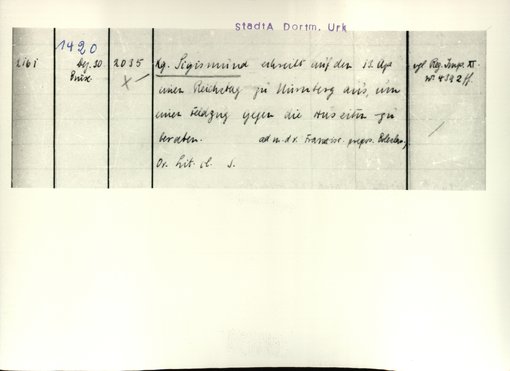 StadtA Dortm. Urk
1420
2161 Dez. 30 2035 Kg. Sigismund schreibt auf den 13. Apr. vgl. Reg. Imp. XI
Brüx einen Reichstag zu Nürnberg aus, um nr 4392 ff.
einen Feldzug gegen die Hussiten zu
beraten. ad m. d. r. Francisc. prepos. Boleslav,
Or. lit. cl. S.